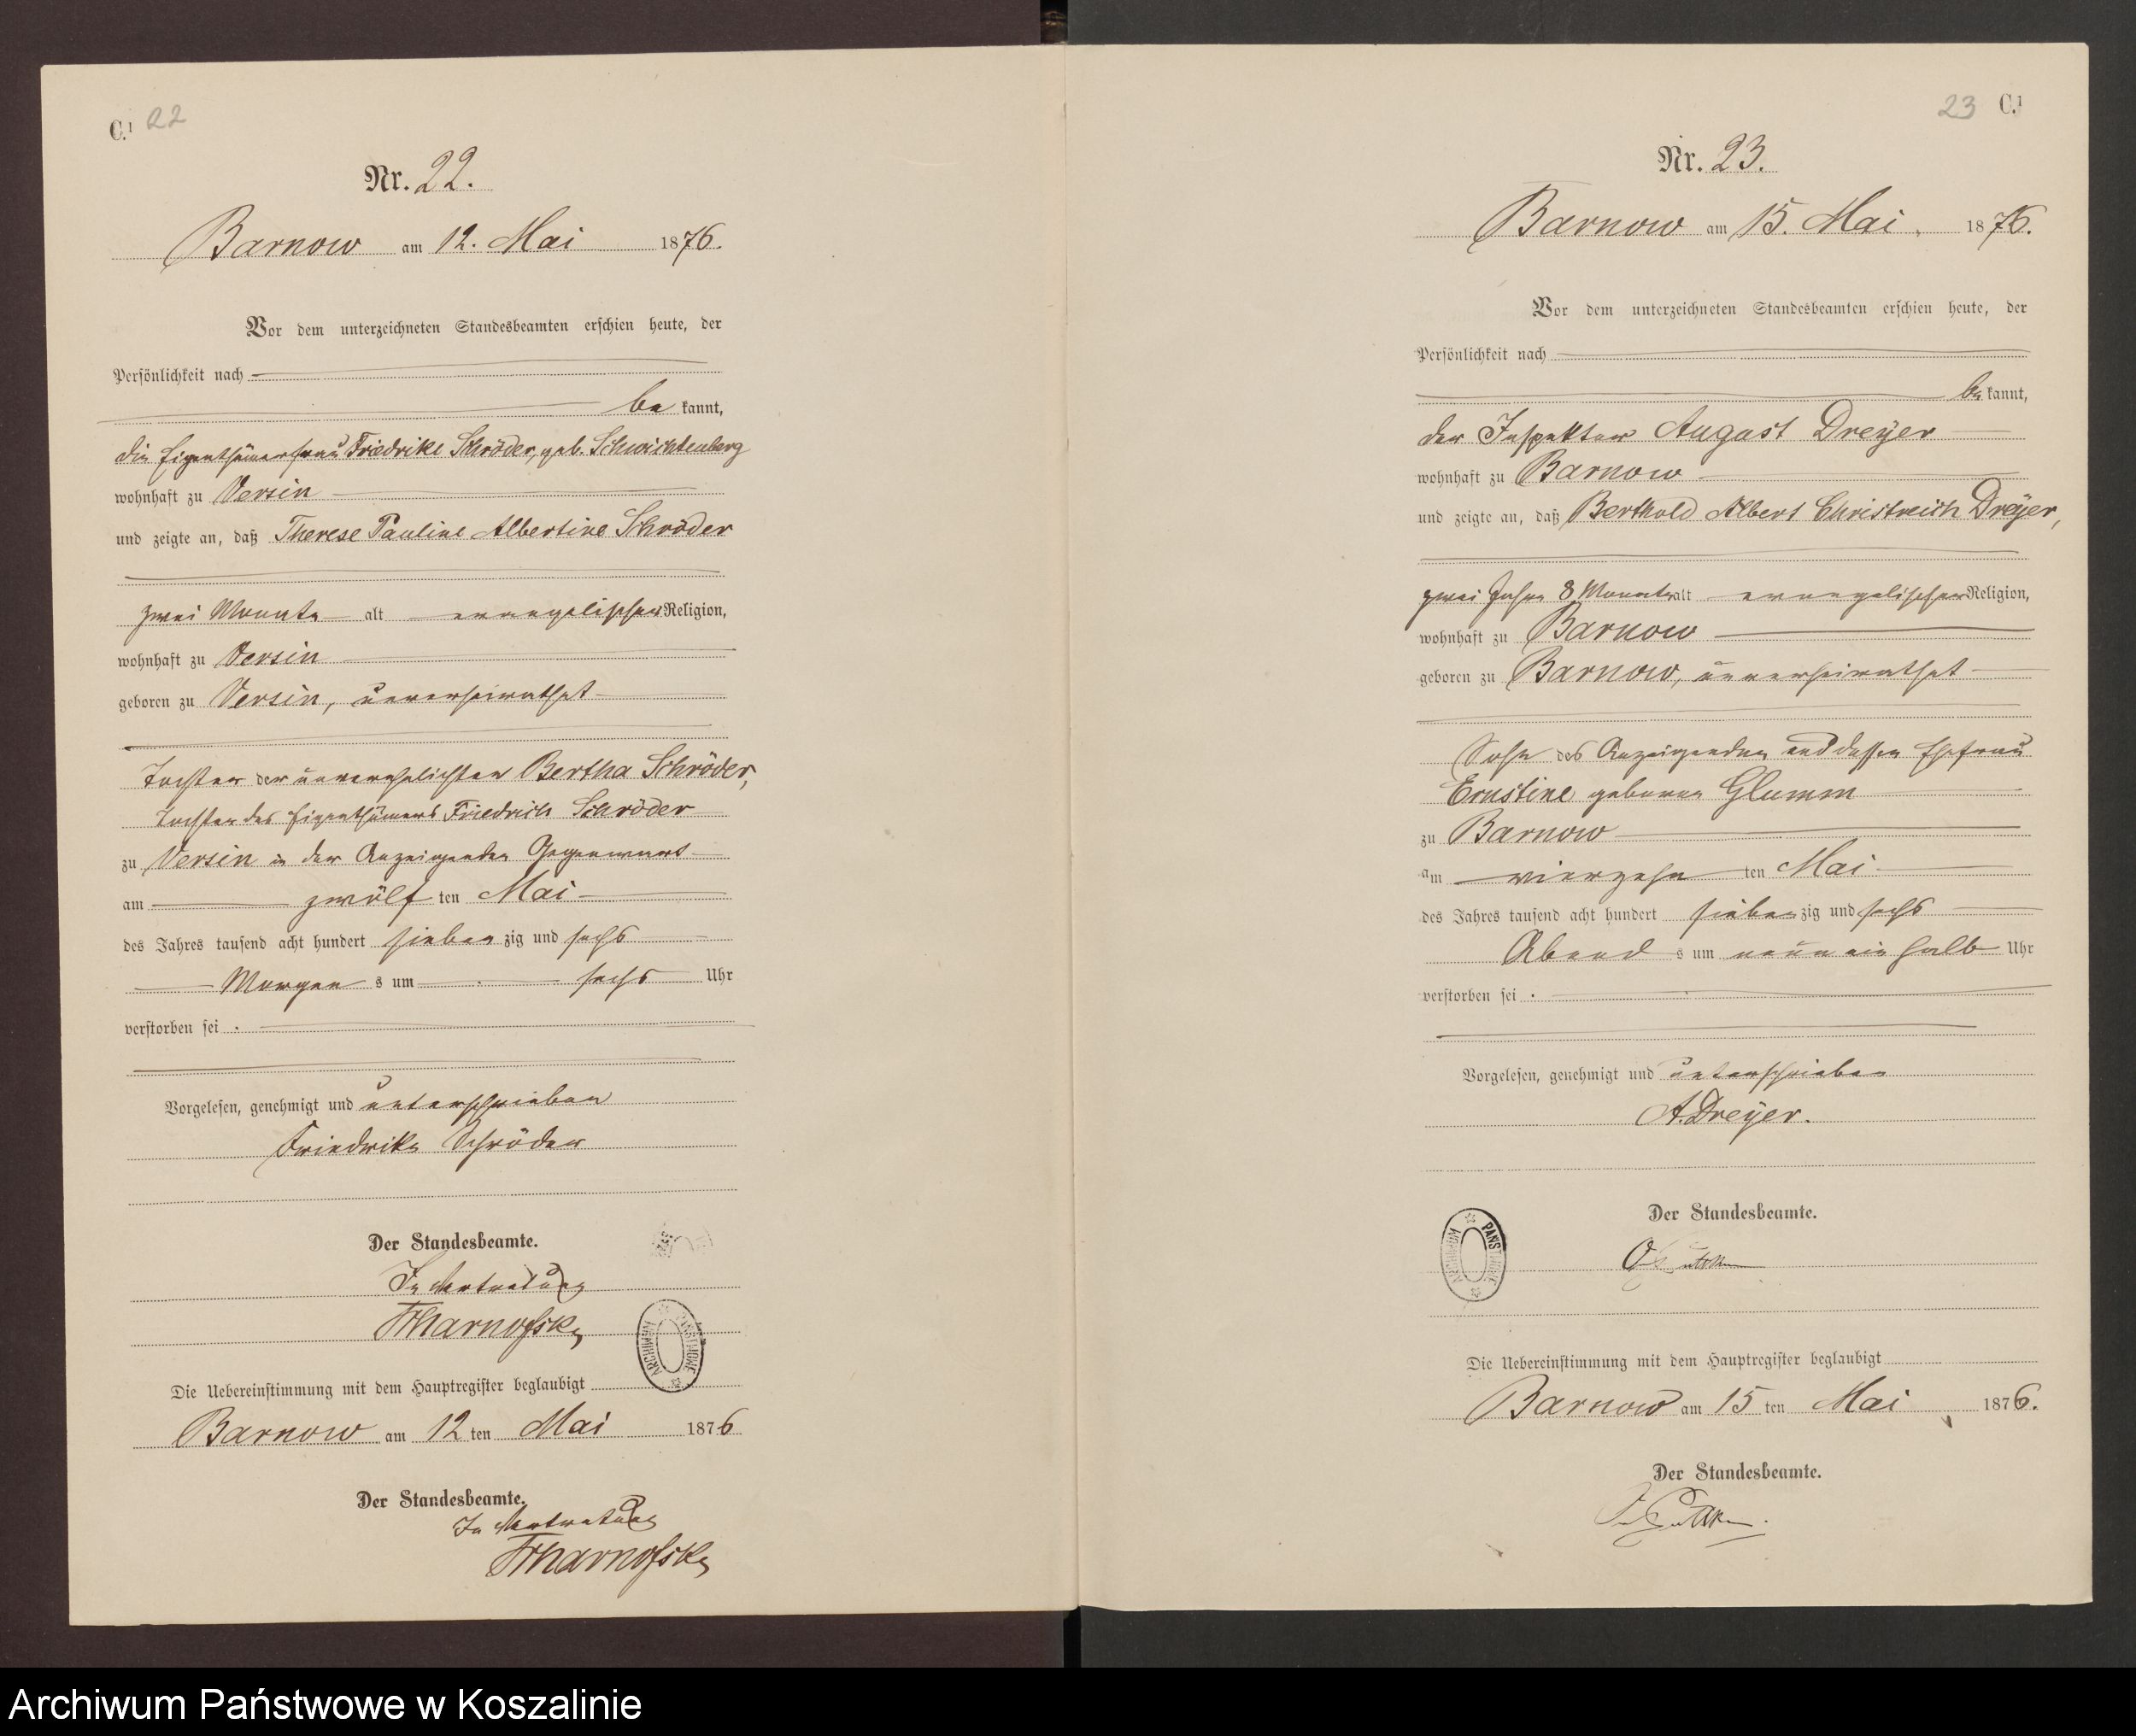 C.¹ 22
Nr. 22.
Barnow am 12. Mai 1876.
Vor dem unterzeichneten Standesbeamten erschien heute, der
Persönlichkeit nach
be kannt,
die Eigenthümerfrau Friedrike Schröder, geb. Schwichtenberg
wohnhaft zu Versin
und zeigte an, daß Therese Pauline Albertine Schröder
zwei Monate alt evangelischer Religion,
wohnhaft zu Versin
geboren zu Versin, unverheirathet
Tochter der unverehelichten Bertha Schröder,
Tochter des Eigenthümers Friedrich Schröder
zu Versin in der Anzeigenden Gegenwart
am zwölf ten Mai
des Jahres tausend acht hundert sieben zig und sechs
Morgen s um sechs Uhr
verstorben sei .
Vorgelesen, genehmigt und unterschrieben
Friedrike Schröder
Der Standesbeamte.
In Vertretung
Die Uebereinstimmung mit dem Hauptregister beglaubigt
Barnow am 12 ten Mai 1876
Der Standesbeamte.
In Vertretung
23 C.¹
Nr. 23.
Barnow am 15. Mai. 1876.
Vor dem unterzeichneten Standesbeamten erschien heute, der
Persönlichkeit nach
be kannt,
der Inspektor August Dreÿer
wohnhaft zu Barnow
und zeigte an, daß Berthold Albert Christreich Dreÿer,
zwei Jahre 8 Monate alt evangelischer Religion,
wohnhaft zu Barnow
geboren zu Barnow, unverheirathet
Sohn des Anzeigenden und dessen Ehefrau
Ernstine geborne Glumm
zu Barnow
am vierzehn ten Mai
des Jahres tausend acht hundert sieben zig und sechs
Abend s um neun ein halb Uhr
verstorben sei .
Vorgelesen, genehmigt und unterschrieben
A. Dreÿer.
Der Standesbeamte.
ARCHIWUM PAŃSTWOWE
Die Uebereinstimmung mit dem Hauptregister beglaubigt
Barnow am 15 ten Mai 1876.
Der Standesbeamte.
Archiwum Państwowe w Koszalinie